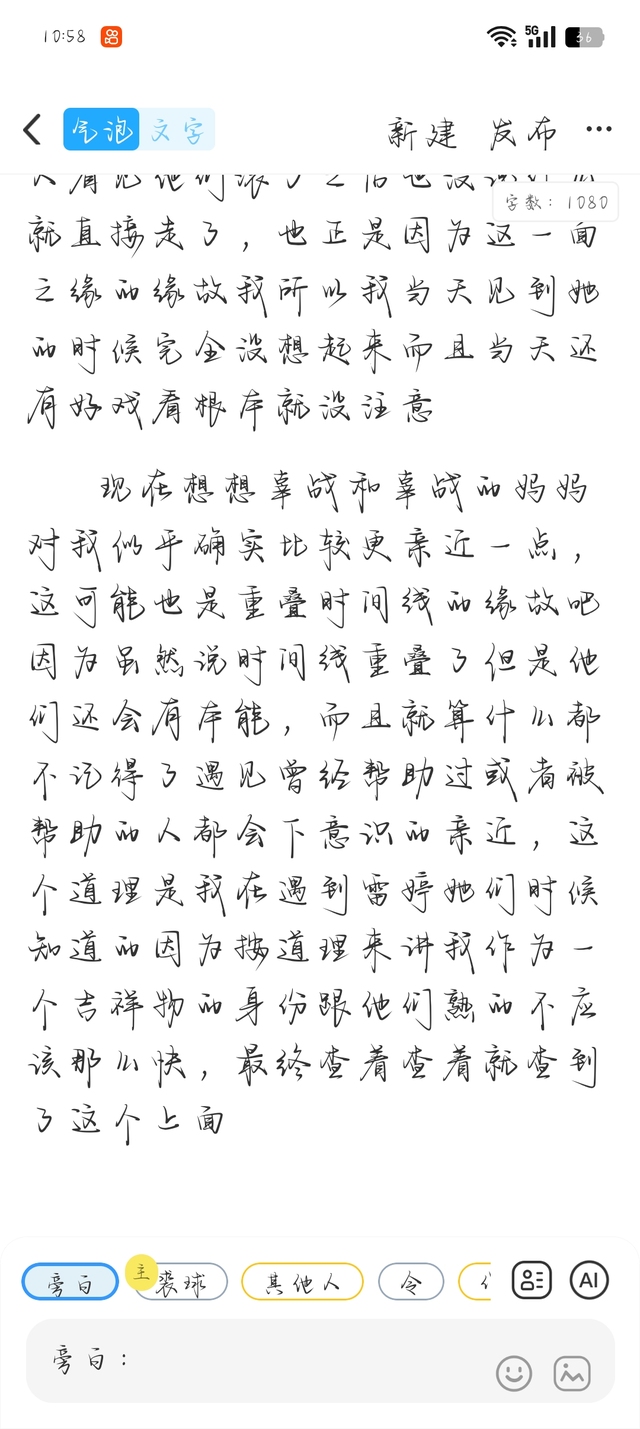 10:58
5G
36
气泡 文字
新建 发布
字数：1080
就直接走了，也正是因为这一面
之缘的缘故我所以我当天见到她
的时候完全没想起来而且当天还
有好戏看根本就没注意
现在想想辜战和辜战的妈妈
对我似乎确实比较更亲近一点，
这可能也是重叠时间线的缘故吧
因为虽然说时间线重叠了但是他
们还会有本能，而且就算什么都
不记得了遇见曾经帮助过或者被
帮助的人都会下意识的亲近，这
个道理是我在遇到雷婷她们时候
知道的因为按道理来讲我作为一
个吉祥物的身份跟他们熟的不应
该那么快，最终查着查着就查到
了这个上面
旁白 主 裴球 其他人 令
AI
旁白：